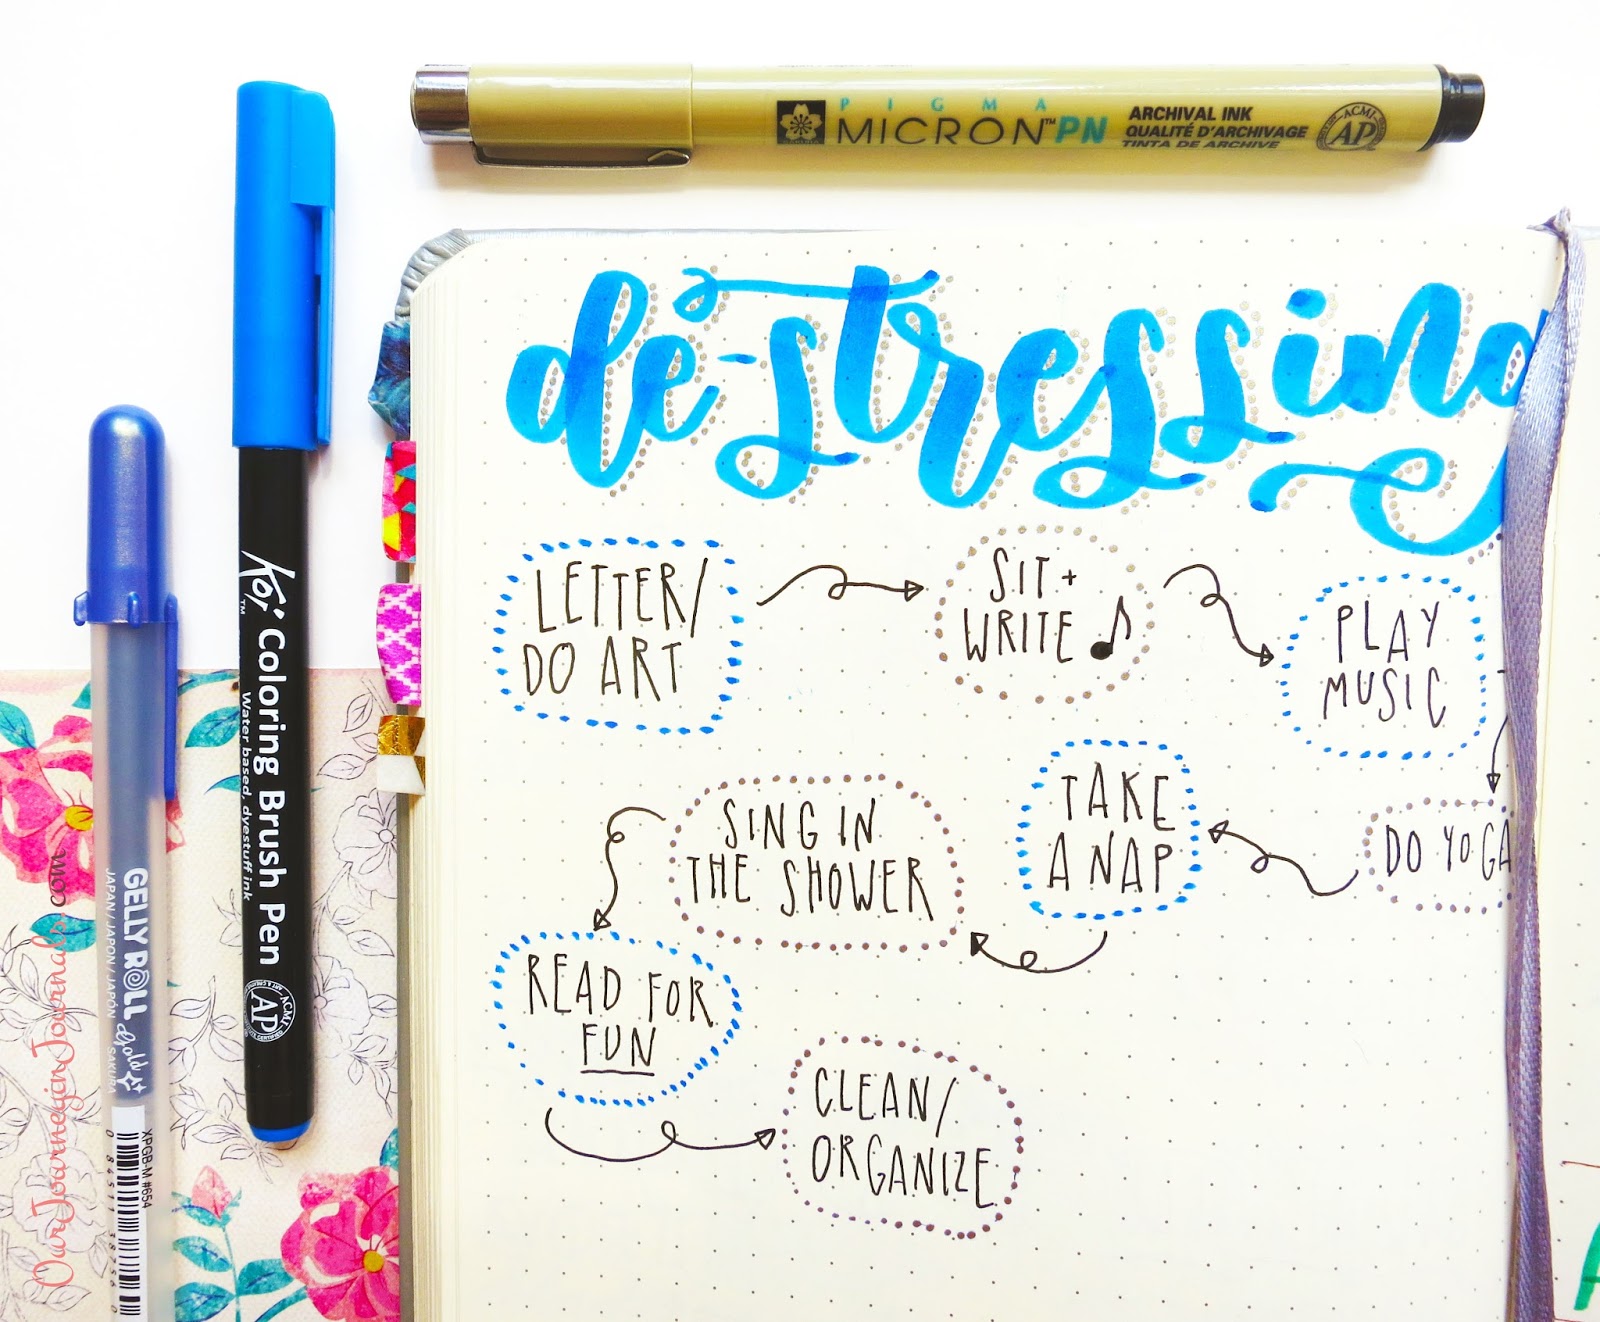 PIGMA
MICRON™ PN
ARCHIVAL INK
QUALITÉ D'ARCHIVAGE
TINTA DE ARCHIVE
ACMI
AP
de-stressing
LETTER/
DO ART
SIT +
WRITE ♪
PLAY
MUSIC
DO YOGA
TAKE
A NAP
SING IN
THE SHOWER
READ FOR
FUN
CLEAN/
ORGANIZE
Koi™ Coloring Brush Pen
Water based, dyestuff ink
ACMI
AP
GELLY ROLL
JAPAN / JAPON / JAPÓN SAKURA
XPGB-M #654
0 84511 38756 0
OurJourneyinJournals.com